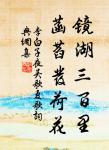 鏡湖三百里
菡萏發荷花
李白子夜吳歌夏歌詞
典獨集